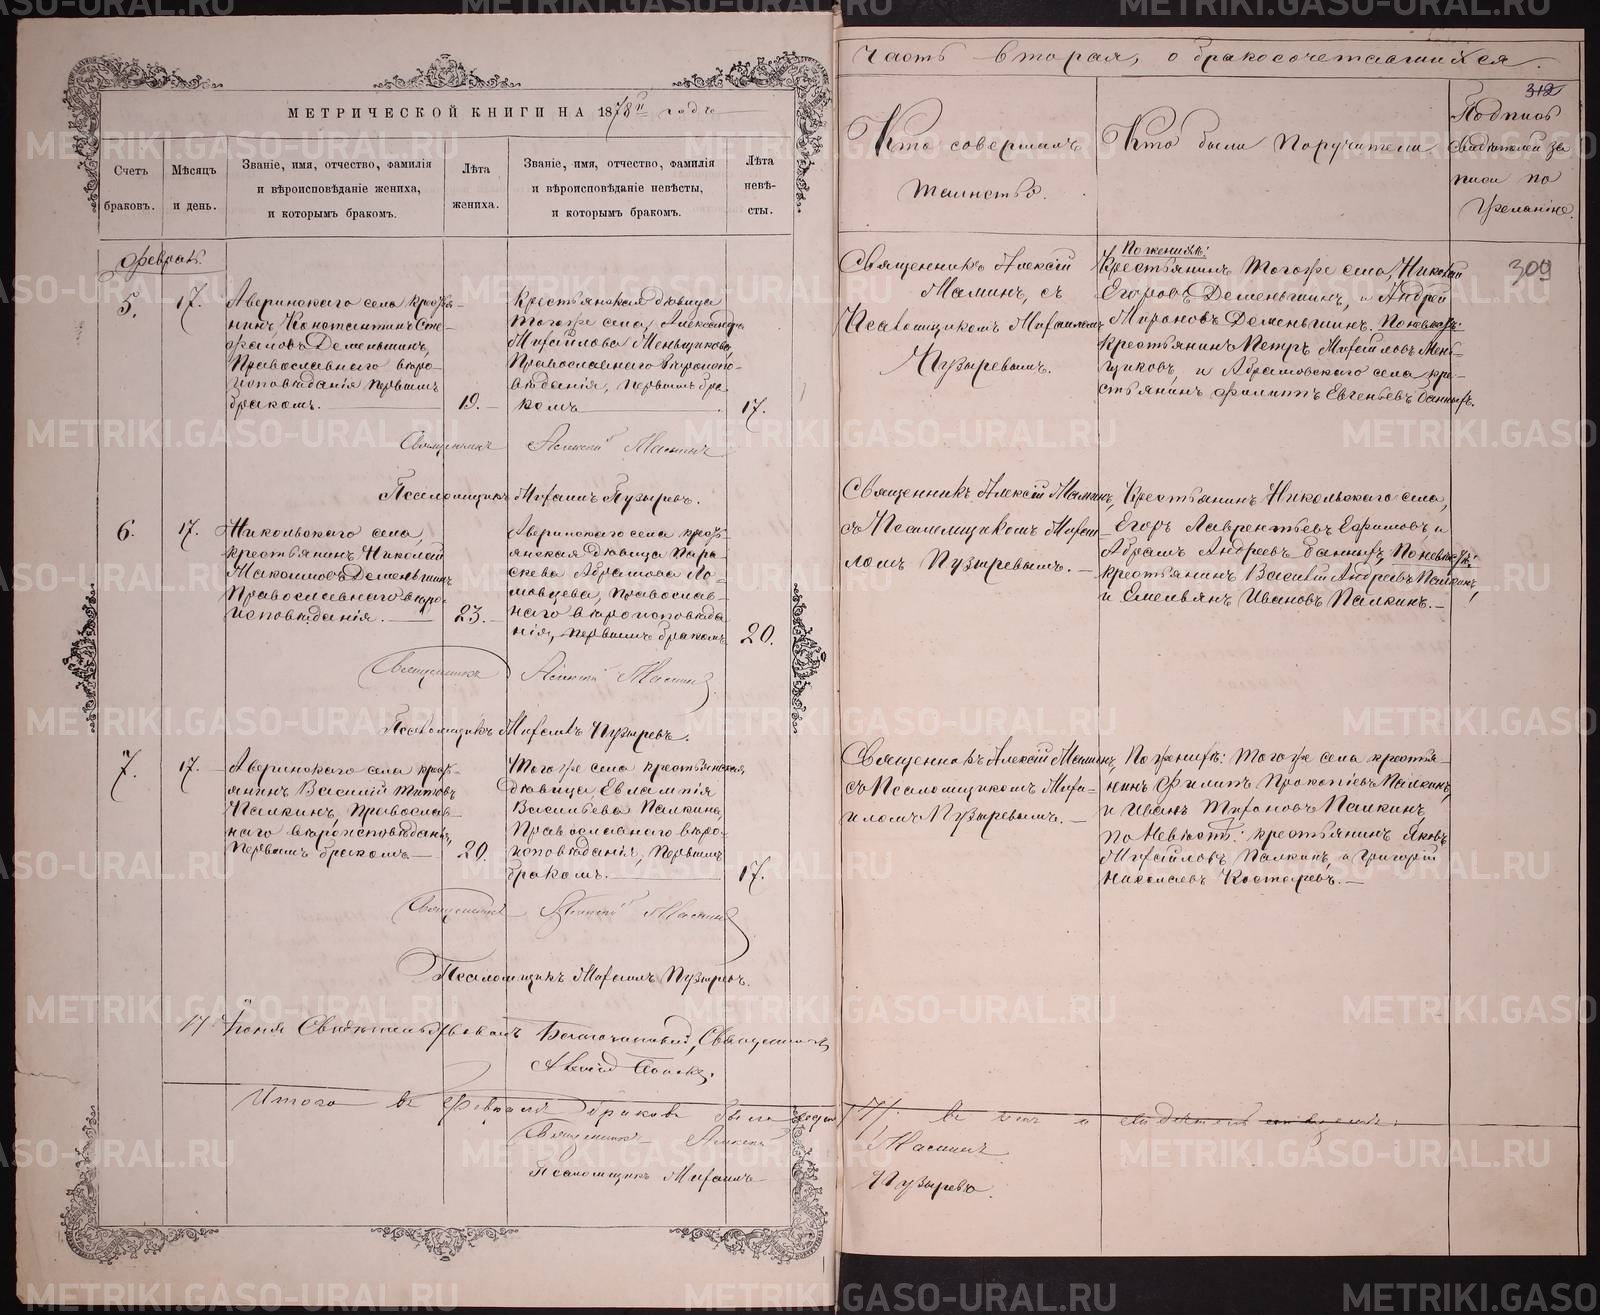 МЕТРИЧЕСКОЙ КНИГИ НА 1878й годъ
Счетъ браковъ.
Мѣсяцъ и день.
Званіе, имя, отчество, фамилія
и вѣроисповѣданіе жениха,
и которымъ бракомъ.
Лѣта жениха.
Званіе, имя, отчество, фамилія
и вѣроисповѣданіе невѣсты,
и которымъ бракомъ.
Лѣта невѣ-
сты.
Февраль.
5.
17.
Аверинскаго села кресть-
янинъ Константинъ Сте-
фановъ Деменьшинъ,
Православнаго вѣро-
исповѣданія первымъ
бракомъ.
19.
Крестьянская дѣвица
тогоже села, Александра
Михайлова Меньщикова,
Православнаго вѣроиспо-
вѣданія, первымъ бра-
комъ
17.
Священникъ Алексій Маминъ
Псаломщикъ Михаилъ Пузыревъ.
6.
17.
Никольскаго села,
крестьянинъ Николай
Максимовъ Деменьшинъ
Православнаго вѣро-
исповѣданія.
23.
Аверинскаго села кресть-
янская дѣвица Пара-
скева Абрамова
Православ-
наго вѣроисповѣда-
нія, первымъ бракомъ
20.
Священникъ Алексій Маминъ
Псаломщикъ Михаилъ Пузыревъ.
7.
17.
Аверинскаго села кресть-
янинъ Василій Титовъ
Палкинъ, Православ-
наго вѣроисповѣданія,
первымъ бракомъ
20.
Тогоже села крестьянская
дѣвица Евлампія
Васильева Палкина,
Православнаго вѣро-
исповѣданія, первымъ
бракомъ.
17.
Священникъ Алексій Маминъ
Псаломщикъ Михаилъ Пузыревъ.
17 Іюня Свидѣтельствовалъ Благочинный, Священникъ
Итого въ Февралѣ браковъ было семь
Священникъ Алексій
Псаломщикъ Михаилъ
Часть вторая, о бракосочетавшихся.
312
Кто совершалъ
таинство.
Кто были поручители
Подпись
свидѣтелей за-
писи по
желанію.
309
Священникъ Алексій
Маминъ, съ
Псаломщикомъ Михаиломъ
Пузыревымъ.
По женихѣ:
Крестьянинъ тогоже села, Николай
Егоровъ Деменьшинъ, и Андрей
Мироновъ Деменьшинъ. По невѣстѣ:
крестьянинъ Петръ Михайловъ Мень-
щиковъ, и Абрамовскаго села кре-
стьянинъ Филиппъ Евгеньевъ Банныхъ.
Священникъ Алексій Маминъ,
съ Псаломщикомъ Михаи-
ломъ Пузыревымъ.
Крестьянинъ Никольскаго села,
Егоръ Лаврентьевъ Ефимовъ и
Абрамъ Андреевъ Банныхъ, по невѣстѣ:
крестьянинъ Василій Андреевъ Палкинъ,
и Емельянъ Ивановъ Палкинъ.
Священникъ Алексій Маминъ,
съ Псаломщикомъ Миха-
иломъ Пузыревымъ.
По женихѣ: Тогоже села крестья-
нинъ Филипъ Прокопіевъ Палкинъ,
и Иванъ Палкинъ,
по Невѣстѣ: крестьянинъ Яковъ
Михайловъ Палкинъ, и Григорій
Николаевъ Костаревъ.
/7/.
Маминъ
Пузыревъ.
METRIKI.GASO-URAL.RU